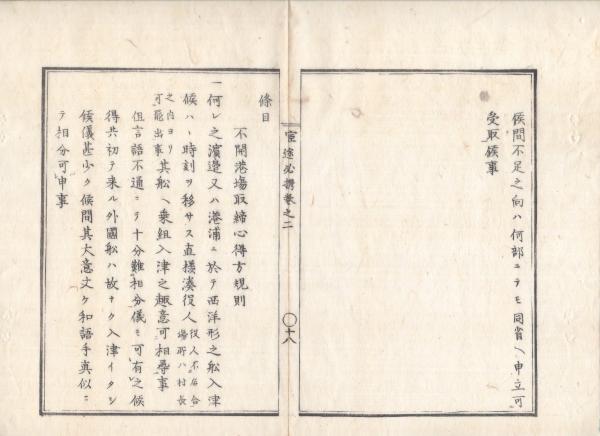 候間不足之向ハ何部ニテモ同省ヘ申立可
受取候事
宦途必携巻之二
〇十八
不開港場取締心得方規則
條目
一何レ之濱邊又ハ港浦ニ於テ西洋形之舩入津
候ハヽ時刻ヲ移サス直様湊役人役人不居合場所ハ村長
之内ヨリ可罷出事其舩ヘ乗組入津之趣意可相尋事
但言語不通ニテ十分難相分儀モ可有之候
得共初テ来ル外國舩ハ故ナク入津イタシ
候儀甚少ク候間其大意文ク和語手真似ニ
テ相分可申事